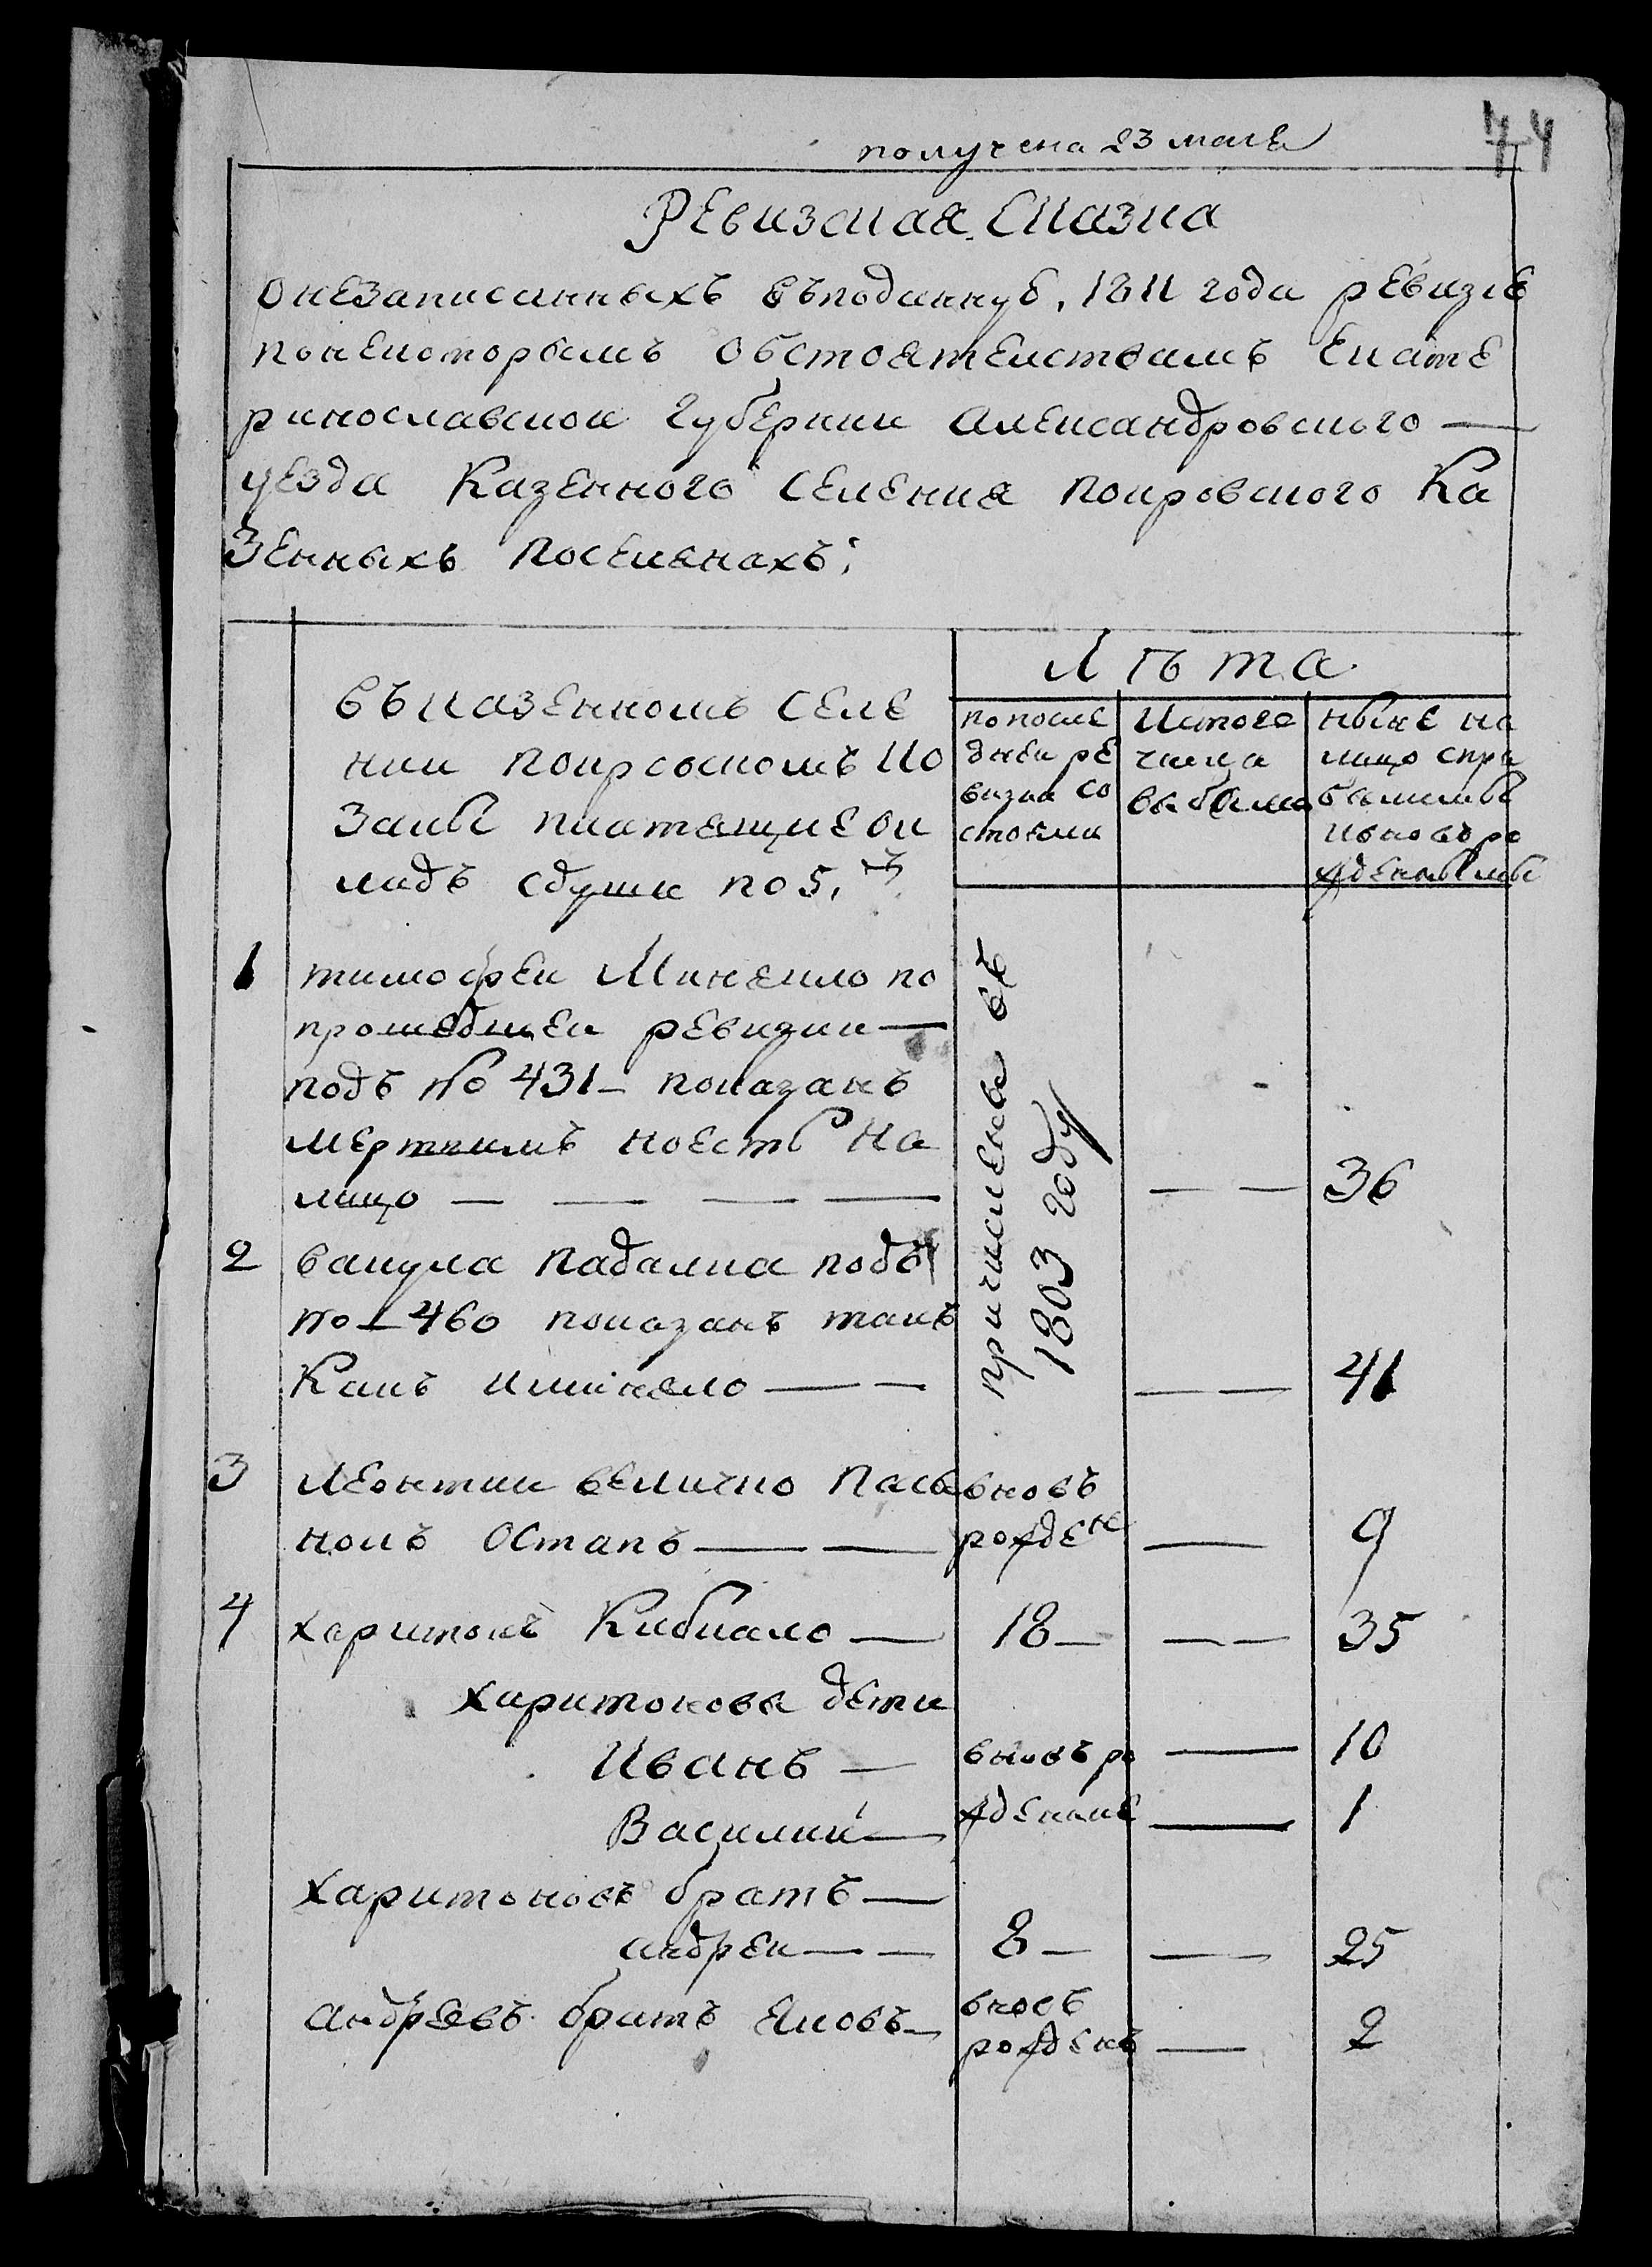 получена 23 мая
44
Ревизская Сказка
О незаписанныхъ въ поданную, 1811 года ревизіе
по некоторымъ обстоятелствамъ Екате
ринославской губернии Александровского —
уезда Казенного селения Покровского Ка
зенныхъ поселянахъ:
Лѣта
въ казенномъ селе
нии Покровскомъ Ко
заки платящие ок
ладъ с души по 5.
по после
дней ре
визии со
стояли
Ис того
числа
выбыло
ныне на
лицо с при
былыми
и вновь ро
жденными
1 тимофей Миняило по
прошедшей ревизии —
подъ № 431 — показанъ
мертвимъ но есть на
лицо — — — — — — 36
причислены въ
1803 году
2 вакула Падалка подъ
№ — 460 показанъ такъ
Какъ и миняло — — — — 41
3 Леонтии величко пасы вновъ
нокъ Остапъ — — рожденъ — 9
4 харитонъ Кибкало — 18 — — — 35
харитоновы дети
Иванъ — вновъ ро — 10
Василий — ждение — 1
харитоновъ братъ —
андреи — — 8 — — 25
андреевъ братъ яковъ — вновъ
рожденъ — 2